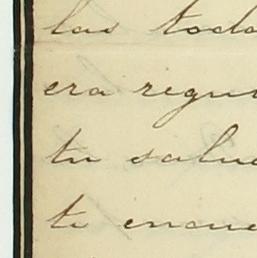 las toda
era regu
tu salu
te encue